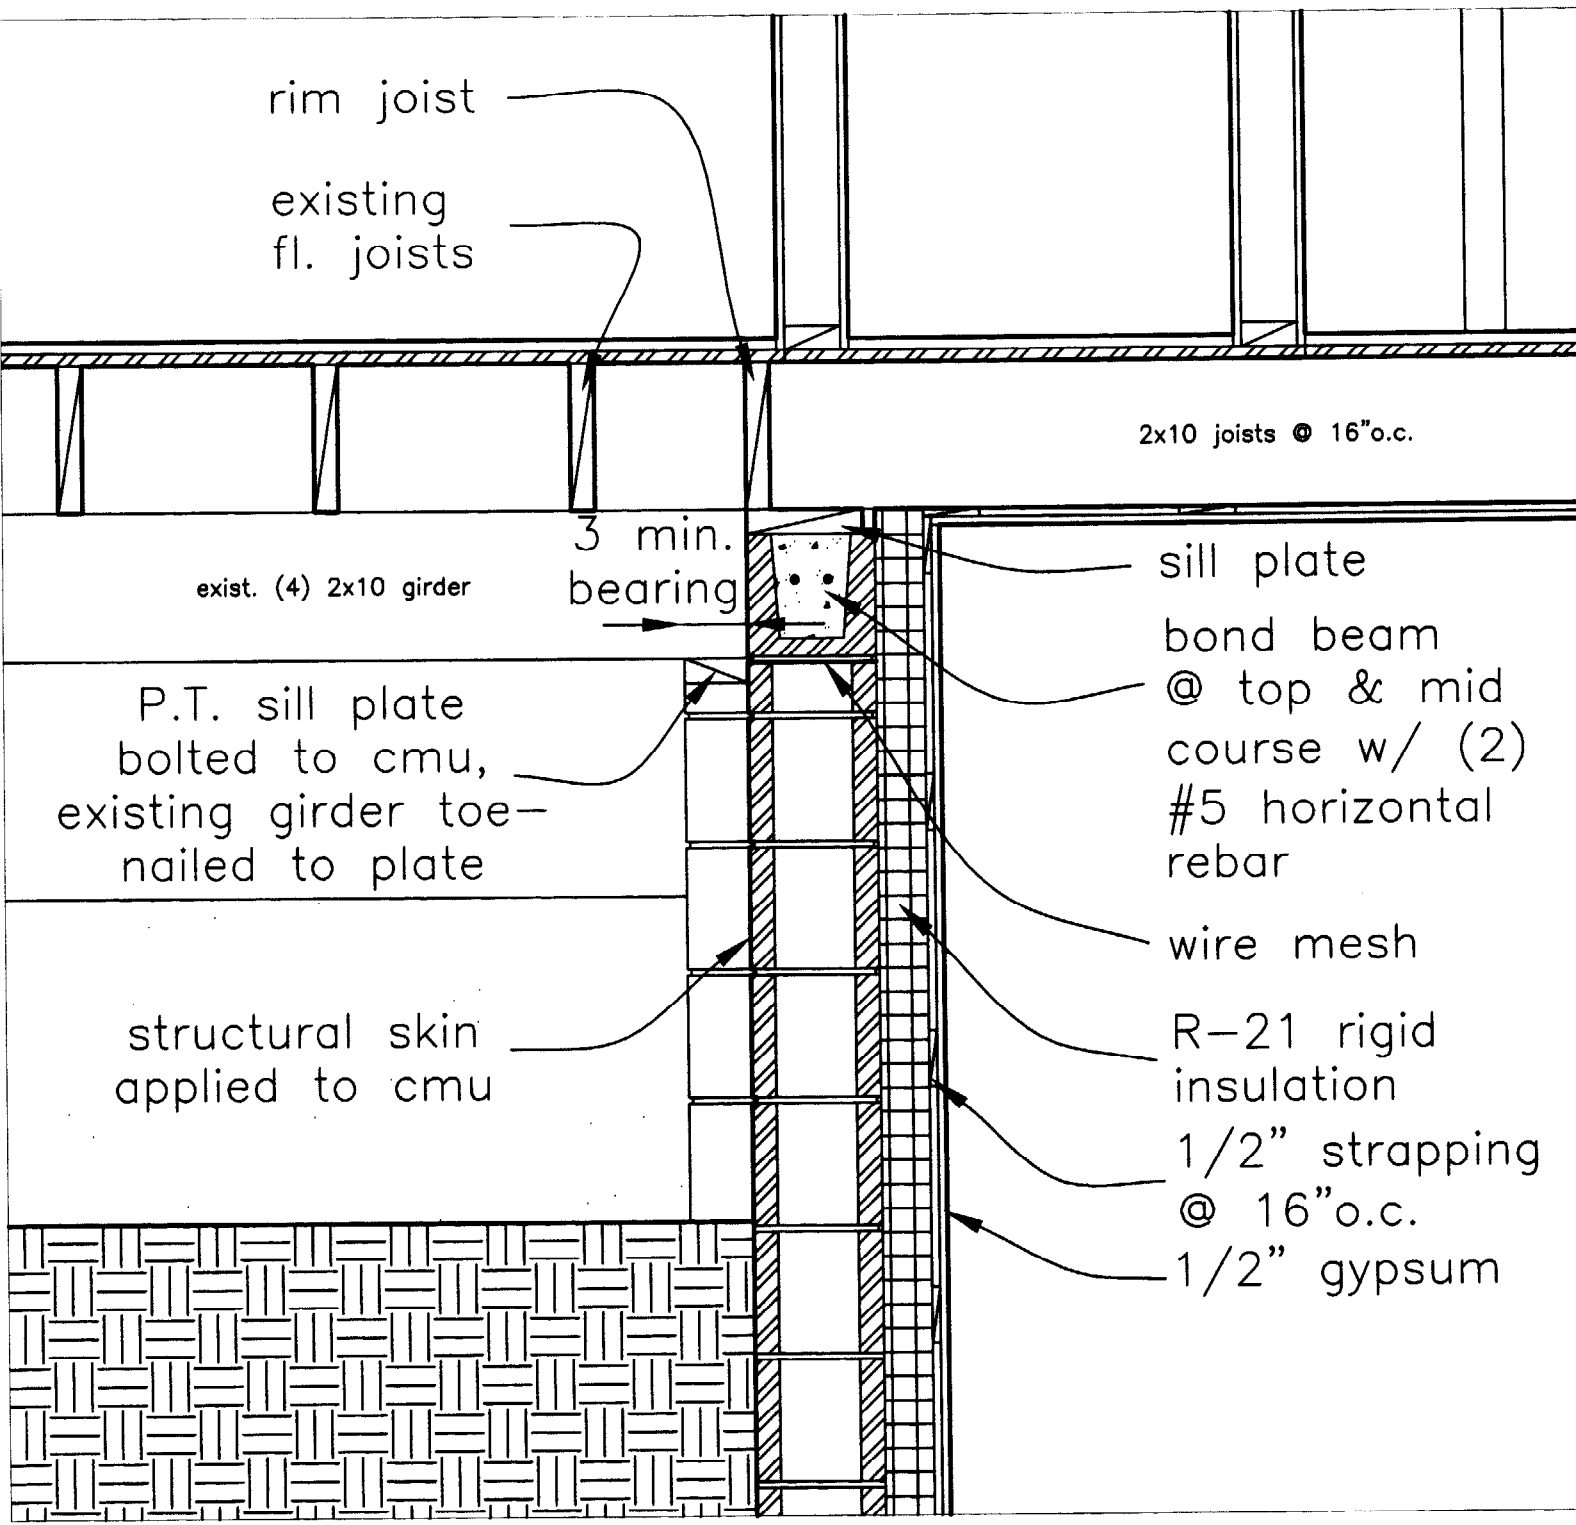 rim joist
existing
fl. joists
2x10 joists @ 16"o.c.
3 min.
bearing
exist. (4) 2x10 girder
sill plate
bond beam
@ top & mid
course w/ (2)
#5 horizontal
rebar
P.T. sill plate
bolted to cmu,
existing girder toe-
nailed to plate
wire mesh
structural skin
applied to cmu
R-21 rigid
insulation
1/2" strapping
@ 16"o.c.
1/2" gypsum